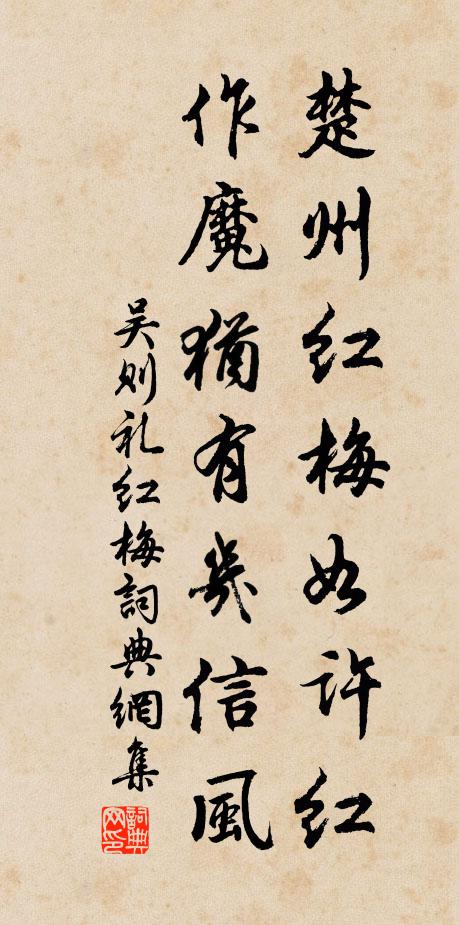 楚州红梅如许红
作魔犹有几信風
吴则礼红梅詞典網集
詞典网印